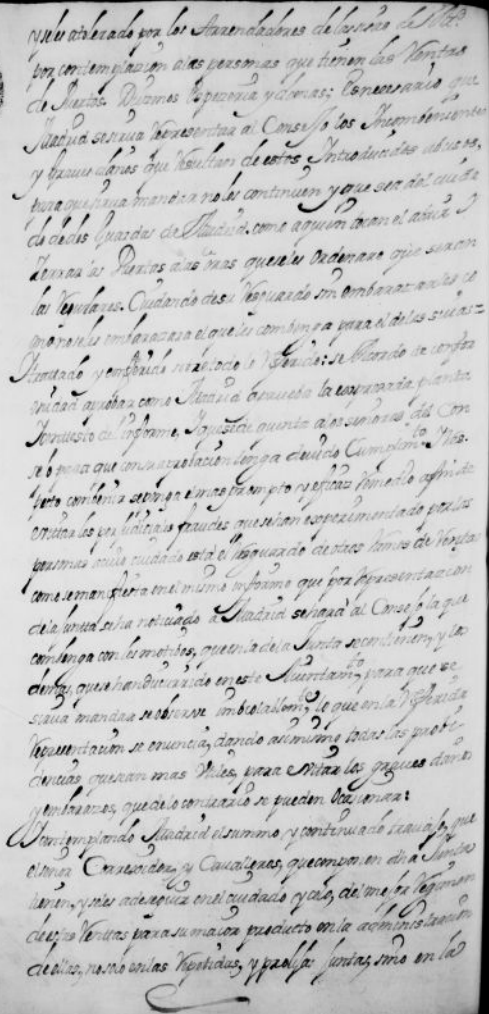 y seles a tolerado por los Arrendadores de las
por contemplazion a las personas que tienen las Rentas
de Puertos. Diezmos Espezeria y demas; Es nezesario que
Madrid se sirva Representar al Consejo los Incombenientes
y graves daños que Resultan de estos Introduzidos abusos,
para que sirva mandar no les continuen y que sea del cuida
do de los Guardas de Madrid. como a quien tocan el abrir y
zerrar las Puertas a las oras que seles ordenare que seran
las Regulares. Cuidando de su Resguardo sin embarazarles co
mo no seles embarazara el que les combenga para el de las suias:
Y trattado y conferido sobre todo lo Referido: se Acordo de confor
midad aprobar como Madrid aprueba la expresada planta
Y puesto del Informe, Y que se de quenta a los señores del Con
sejo para que con su aprobacion tenga devido Cumplimto. Y Res
pecto combenir se ponga el mas prompto y eficaz Remedio a fin de
evitar los perjudiciales fraudes que se han experimentado por las
personas a cuio cuidado esta el Resguardo de otros Ramos de Rentas
como se manifiesta en el mismo informe que por Representazion
de la Junta se ha noticiado a Madrid se hara al Consejo la que
combenga con los motibos, que en la de la Junta se contienen, y los
demas, que se han discurrido en este Aiuntamto, para que se
sirva mandar se observe imbiolablemte, lo que en la Referida
Representacion se enuncia, dando asimismo todas las probi
dencias que sean mas Utiles, para evitar los graves daños
y embarazos, que de lo contrario se pueden ocasionar:
Y contemplando Madrid el summo, y continuado travajo, que
el señor Corregidor, y Cavalleros, que componen dha Junta
tienen, y seles a de seguir en el cuidado y celo, del mejor Regimen
de estas Rentas para su maior producto en la administracion
de ellas, no solo en las Repetidas, y prolijas Juntas, sino en la